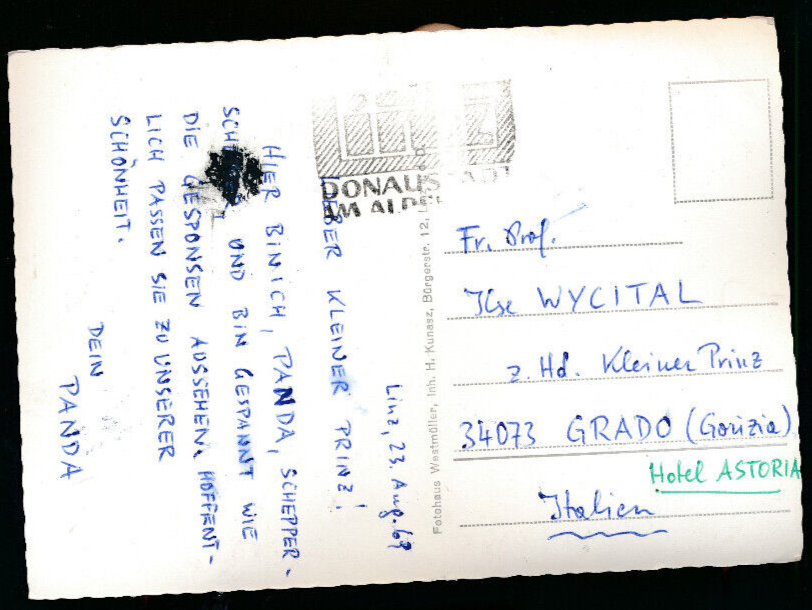 Linz, 23. Aug. 69
LIEBER KLEINER PRINZ!
HIER BIN ICH, PANDA, SCHEPPER-
UND BIN GESPANNT WIE
DIE GESPONSEN AUSSEHEN. HOFFENT-
LICH PASSEN SIE ZU UNSERER
SCHÖNHEIT.
DEIN
PANDA
DONAUSTADT
Fotohaus Westmüller, Inh. H. Kunasz, Bürgerstr. 12, L
Fr. Prof.
Ilse WYCITAL
z Hd. Kleiner Prinz
34073 GRADO (Gorizia)
Hotel ASTORIA
Italien